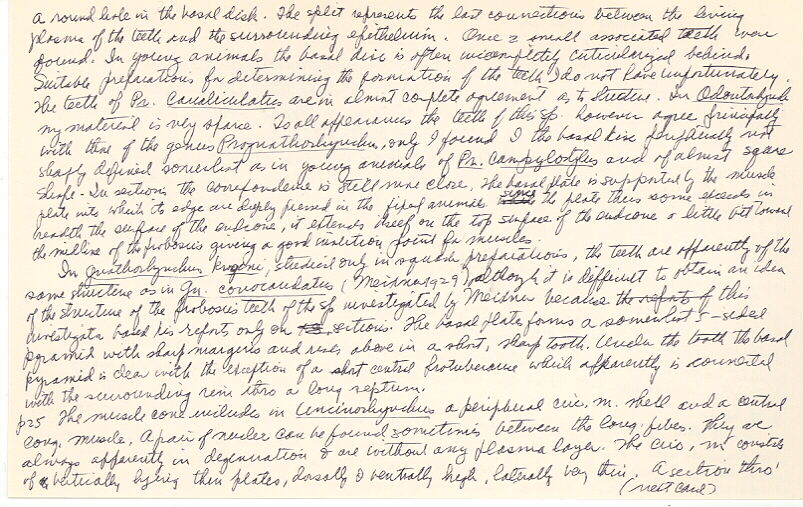 a round hole in the basal disk. The split represents the last connections between the living
plasma of the teeth and the surrounding epithelium. Once 2 small associated teeth were
found. In young animals the basal disc is often incompletely cuticularized behind.
Suitable preparations for determining the formation of the teeth I do not have unfortunately.
The teeth of Pr. Canaliculatus are in almost complete agreement as to structure. In Odontorhynchus
my material is very sparse. To all appearances the teeth of this sp. however agree principally
with that of the genus Prognathorhynchus, only I found I the basal disc peripherally not
sharply defined somewhat as in young animals of Pr. Campylostylus and of almost square
shape. In sections the correspondence is still more close. The basal plate is supported by the muscle
plate into which its edge are deeply pressed in the fixed animal. Since the plate thus some exceeds in
breadth the surface of the endcone, it extends itself on the top surface of the endcone a little bit toward
the midline of the proboscis giving a good insertion point for muscles.
In Gnathorhynchus krogeni, studied only in squash preparations, the teeth are apparently of the
same structure as in Gn. conocaudatus (Meixner 1929) although it is difficult to obtain an idea
of the structure of the proboscis teeth of the sp investigated by Meixner because the reports of this
investigator based his reports only on sections. The basal plate forms a somewhat 5-sided
pyramid with sharp margins and rises above in a short, sharp tooth. Under the tooth the basal
pyramid is clear with the exception of a short central protuberance which apparently is connected
with the surrounding rim thro a long septum.
p25 The muscle cone includes in Uncinorhynchus a peripheral circ. m. shell and a central
long. muscle. A pair of nuclei can be found sometimes between the long. fibers. They are
always apparently in degeneration & are without any plasma layer. The circ. m. consists
of vertically lying thin plates, dorsally & ventrally high, laterally very thin. A section thro'
(next card)